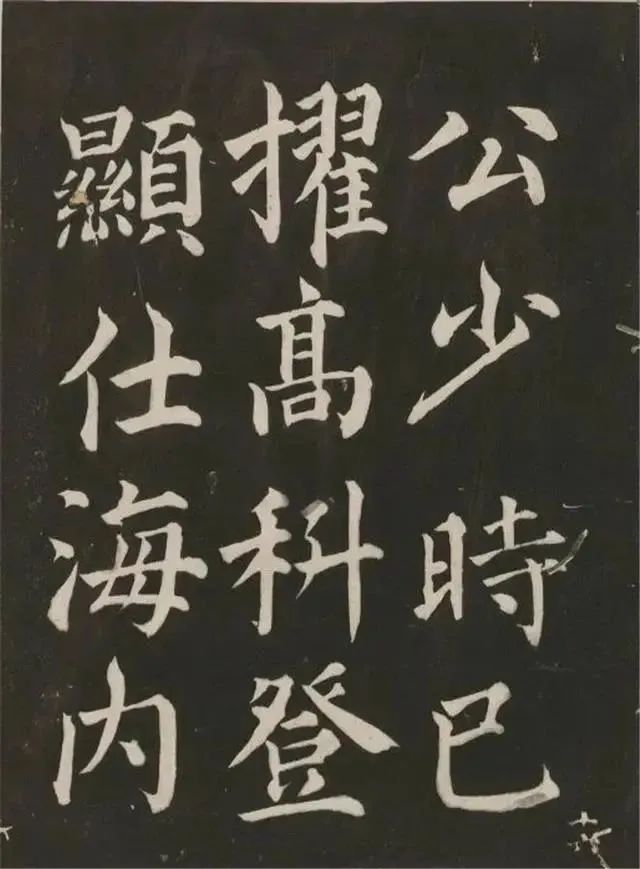 公少時已
擢高科登
顯仕海内